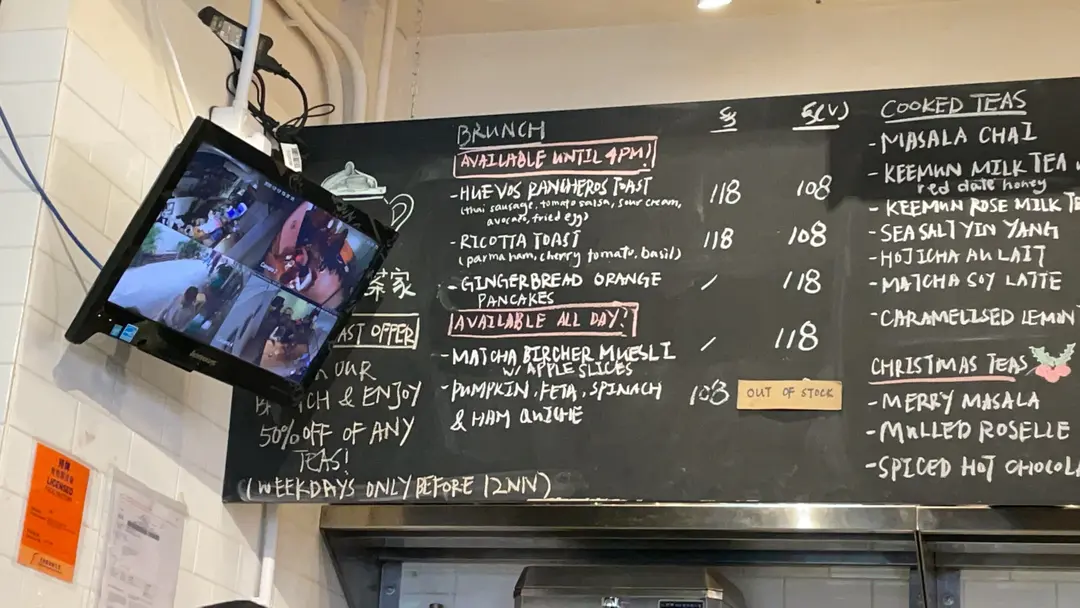 茶家
AST OFFER
OUR
& ENJOY
50% OFF OF ANY
TEAS!
(WEEKDAYS ONLY BEFORE 12NN)
BRUNCH
AVAILABLE UNTIL 4PM!
- HUEVOS RANCHEROS TOAST 118 108
(thai sausage, tomato salsa, sour cream,
avocado, fried egg)
- RICOTTA TOAST 118 108
(parma ham, cherry tomato, basil)
- GINGERBREAD ORANGE / 118
PANCAKES
AVAILABLE ALL DAY!
- MATCHA BIRCHER MUESLI / 118
W/ APPLE SLICES
- PUMPKIN, FETA, SPINACH 108 OUT OF STOCK
& HAM QUICHE
COOKED TEAS
- MASALA CHAI
- KEEMUN MILK TEA
red date honey
- KEEMUN ROSE MILK TE
- SEA SALT YIN YANG
- HOJICHA AU LAIT
- MATCHA SOY LATTE
- CARAMELISED LEMON
CHRISTMAS TEAS
- MERRY MASALA
- MULLED ROSELLE
- SPICED HOT CHOCOLA
LICENSED